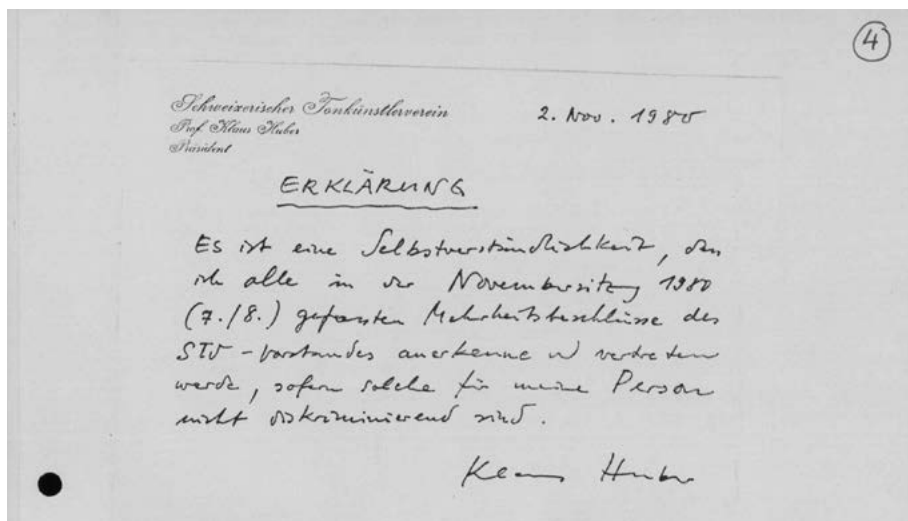 4
Schweizerischer Tonkünstlerverein
Prof. Klaus Huber
Präsident
2. Nov. 1980
ERKLÄRUNG
Es ist eine Selbstverständlichkeit, dass
ich alle in der Novembersitzung 1980
(7./8.) gefassten Mehrheitsbeschlüsse des
STV-Vorstandes anerkenne und vertreten
werde, sofern solche für meine Person
nicht diskriminierend sind.
Klaus Huber